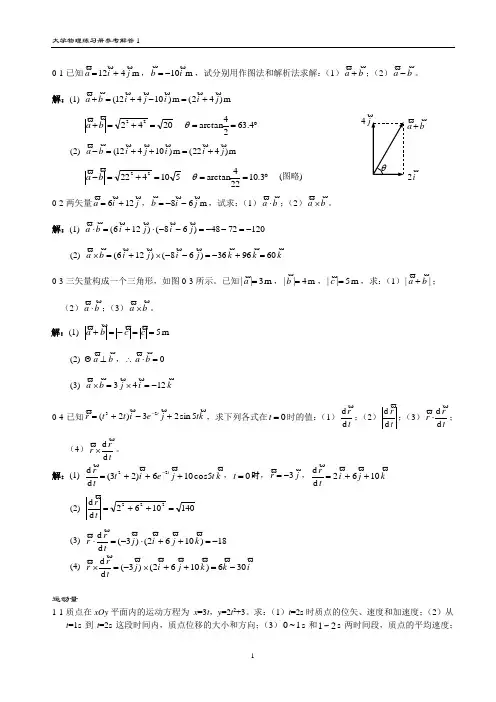 大学物理练习册参考解答 1
0-1 已知 a⃗=12i⃗+4j⃗ m，b⃗=−10i⃗ m，试分别用作图法和解析法求解：（1）a⃗+b⃗；（2）a⃗−b⃗。
解：(1) a⃗+b⃗=(12i⃗+4j⃗−10i⃗)m=(2i⃗+4j⃗)m
|a⃗+b⃗|=√(2²+4²)=√20 θ=arctan 4/2=63.4°
(2) a⃗−b⃗=(12i⃗+4j⃗+10i⃗)m=(22i⃗+4j⃗)m
|a⃗−b⃗|=√(22²+4²)=10√5 θ=arctan 4/22=10.3° (图略)
4j⃗ a⃗+b⃗
θ
2i⃗
0-2 两矢量 a⃗=6i⃗+12j⃗，b⃗=−8i⃗−6j⃗ m，试求：（1）a⃗·b⃗；（2）a⃗×b⃗。
解：(1) a⃗·b⃗=(6i⃗+12j⃗)·(−8i⃗−6j⃗)=−48−72=−120
(2) a⃗×b⃗=(6i⃗+12j⃗)×(−8i⃗−6j⃗)=−36k⃗+96k⃗=60k⃗
0-3 三矢量构成一个三角形，如图 0-3 所示。已知|a⃗|=3m，|b⃗|=4m，|c⃗|=5m，求：（1）|a⃗+b⃗|；
（2）a⃗·b⃗；（3）a⃗×b⃗。
解：(1) |a⃗+b⃗|=|−c⃗|=|c⃗|=5m
(2) Θ a⃗⊥b⃗，∴a⃗·b⃗=0
(3) a⃗×b⃗=3j⃗×4i⃗=−12k⃗
0-4 已知 r⃗=(t³+2t)i⃗−3e⁻²ᵗj⃗+2sin5tk⃗，求下列各式在 t=0 时的值：（1）dr⃗/dt；（2）|dr⃗/dt|；（3）r⃗·dr⃗/dt；
（4）r⃗×dr⃗/dt。
解：(1) dr⃗/dt=(3t²+2)i⃗+6e⁻²ᵗj⃗+10cos5tk⃗，t=0时，r⃗=−3j⃗，dr⃗/dt=2i⃗+6j⃗+10k⃗
(2) |dr⃗/dt|=√(2²+6²+10²)=√140
(3) r⃗·dr⃗/dt=(−3j⃗)·(2i⃗+6j⃗+10k⃗)=−18
(4) r⃗×dr⃗/dt=(−3j⃗)×(2i⃗+6j⃗+10k⃗)=6k⃗−30i⃗
运动量
1-1 质点在 xOy 平面内的运动方程为 x=3t，y=2t²+3。求：（1）t=2s 时质点的位矢、速度和加速度；（2）从
t=1s 到 t=2s 这段时间内，质点位移的大小和方向；（3）0~1s 和 1~2s 两时间段，质点的平均速度；
1